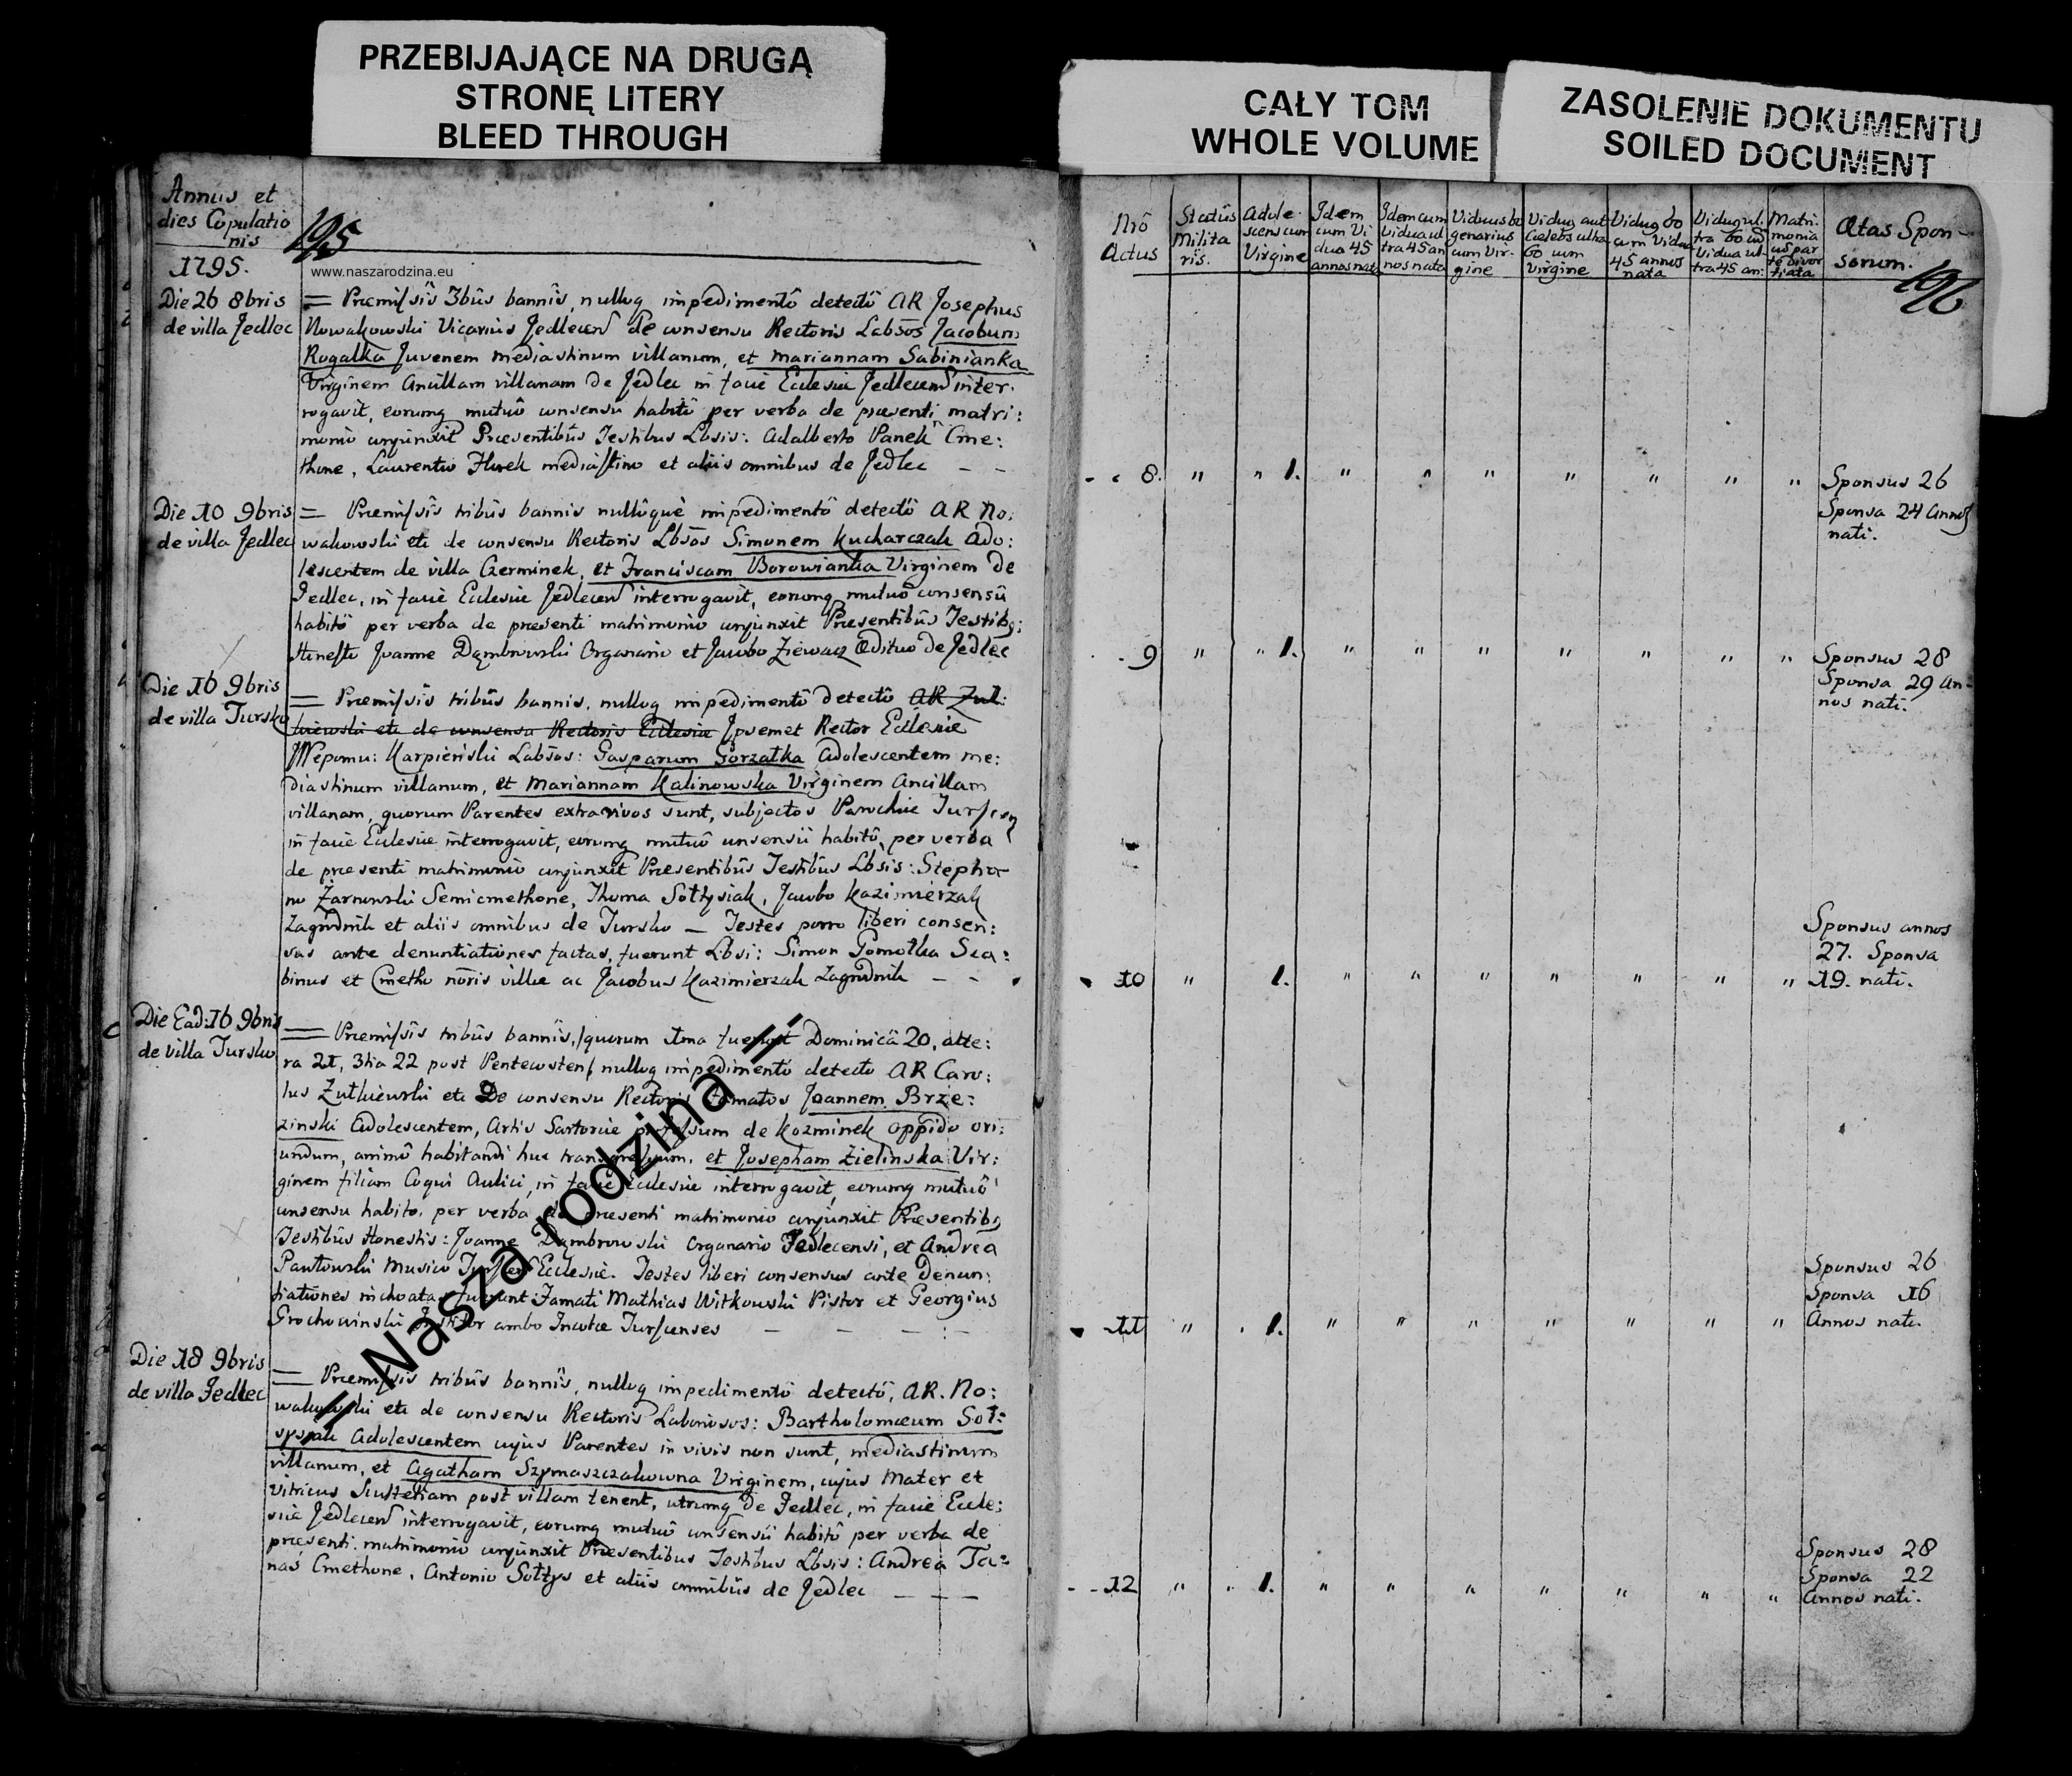 PRZEBIJAJĄCE NA DRUGĄ
STRONĘ LITERY
BLEED THROUGH
CAŁY TOM
WHOLE VOLUME
ZASOLENIE DOKUMENTU
SOILED DOCUMENT
Annus et
dies Copulatio
nis
195
1795.
www.naszarodzina.eu
Die 26 8bris
de villa Jedlec
= Præmissis 3bus bannis, nullog impedimentô detectô AR Josephus
Nowakowski Vicarius Jedlecen de consensu Rectoris Labsos Jacobum
Rogalka Juvenem mediastinum villanum, et Mariannam Sabinianka
Virginem Ancillam villanam de Jedlec in facie Ecclesiæ Jedlecen inter:
rogavit, eorumq mutuô consensu habitô per verba de præsenti matri:
monio conjunxit Præsentibus Testibus Lbsis: Adalberto Panek Cme:
thone, Laurentio Hurek mediastino et aliis omnibus de Jedlec – –
Die 10 9bris
de villa Jedlec
= Præmissis tribus bannis nullôque impedimentô detectô AR No:
wakowski etc de consensu Rectoris Lbsos Simonem Kucharczak Ado:
lescentem de villa Czerminek, et Franciscam Borowianka Virginem de
Jedlec, in facie Ecclesiæ Jedlecen interrogavit, eorumq mutuô consensû
habitô per verba de præsenti matrimonio conjunxit Præsentibus Testibq:
Honesto Joanne Dąmbrowski Organario et Jacobo Ziewacz Ædituo de Jedlec
Die 16 9bris
de villa Tursko
= Præmissis tribus bannis, nullog impedimentô detectô AR Zul:
kiewski etc de consensu Rectoris Ecclesiæ Ipsemet Rector Ecclesiæ
JNepomu: Karpieński Labsos: Gasparum Gorzałka Adolescentem me:
diastinum villanum, et Mariannam Kalinowska Virginem Ancillam
villanam, quorum Parentes extra vivos sunt, subjectos Parochiæ Turscen
in facie Ecclesiæ interrogavit, eorumq mutuô consensû habitô, per verba
de præsenti matrimonio conjunxit Præsentibus Testibus Lbsis: Stepha
no Żarnowski Semicmethone, Thoma Sołtysiak, Jacobo Kazimierzak
Zagrodnik et aliis omnibus de Tursko – Testes porro liberi consen:
sus ante denuntiationes factas, fuerunt Lbsi: Simon Gomolka Sca:
binus et Cmetho nôris villæ ac Jacobus Kazimierzak Zagrodnik – –
Die Ead: 16 9bris
de villa Tursko
= Præmissis tribus bannis, /quorum 1ma fuerunt Dominicâ 20, alte:
ra 21, 3tia 22 post Pentecosten/ nullog impedimentô detecto AR Caro:
lus Zulkiewski etc De consensu Rectoris Famatos Joannem Brze:
zinski Adolescentem, Artis Sartoriæ professum de Kozminek oppido ori:
undum, animô habitandi huc transgressum, et Josepham Zielinska Vir:
ginem filiam Coqui Aulici, in facie Ecclesiæ interrogavit, eorumq mutuô
consensu habito, per verba de præsenti matrimonio conjunxit Præsentibq
Testibus Honestis: Joanne Dąmbrowski Organario Jedlecensi, et Andrea
Pawłowski Musico Turscen Ecclesiæ. Testes liberi consensus ante Denun:
tiationes inchoatas fuerunt Famati Mathias Witkowski Pistor et Georgius
Grochowinski Institor ambo Incolæ Turscenses – – – : –
Die 18 9bris
de villa Jedlec
= Præmissis tribus bannis, nullog impedimentô detectô, AR. No:
wakowski etc de consensu Rectoris Laboriosos: Bartholomæum Soł:
tysiak Adolescentem cujus Parentes in vivis non sunt, mediastinum
villanum, et Agatham Szymaszczakowna Virginem, cujus Mater et
vitricus Sculteriam post villam tenent, utrumq de Jedlec, in facie Eccle:
siæ Jedlecen interrogavit, eorumq mutuô consensû habitô per verba de
præsenti matrimonio conjunxit Præsentibus Testibus Lbsis: Andrea Ta:
nas Cmethone, Antonio Sołtys et aliis omnibus de Jedlec – – –
// Nasza rodzina //
Nrô
Actus
Status
Milita
ris.
Adole-
scens cum
Virgine
Idem
cum Vi
dua 45
annos nata
Idem cum
Vidua ul
tra 45 an
nos nata
Viduus 60
genarius
cum Vir-
gine
Viduus aut
Cælebs ultra
60 cum
Virgine
Viduus 60
cum Vidua
45 annos
nata
Viduus ul-
tra 60 cu
Vidua ul-
tra 45 an:
Matri-
monia
us par
te divor
tiata
Ætas Spon-
sorum.
196
8. " " 1. " " " " " " "
Sponsus 26
Sponsa 24 annos
nati.
9 " " 1. " " " " " " "
Sponsus 28
Sponsa 29 an-
nos nati.
Sponsus annos
27. Sponsa
10 " 1. " " " " " " " 19. nati.
Sponsus 26
Sponsa 16
11 " 1. " " " " " " " Annos nati.
Sponsus 28
Sponsa 22
12 " " 1. " " " " " " " Annos nati.